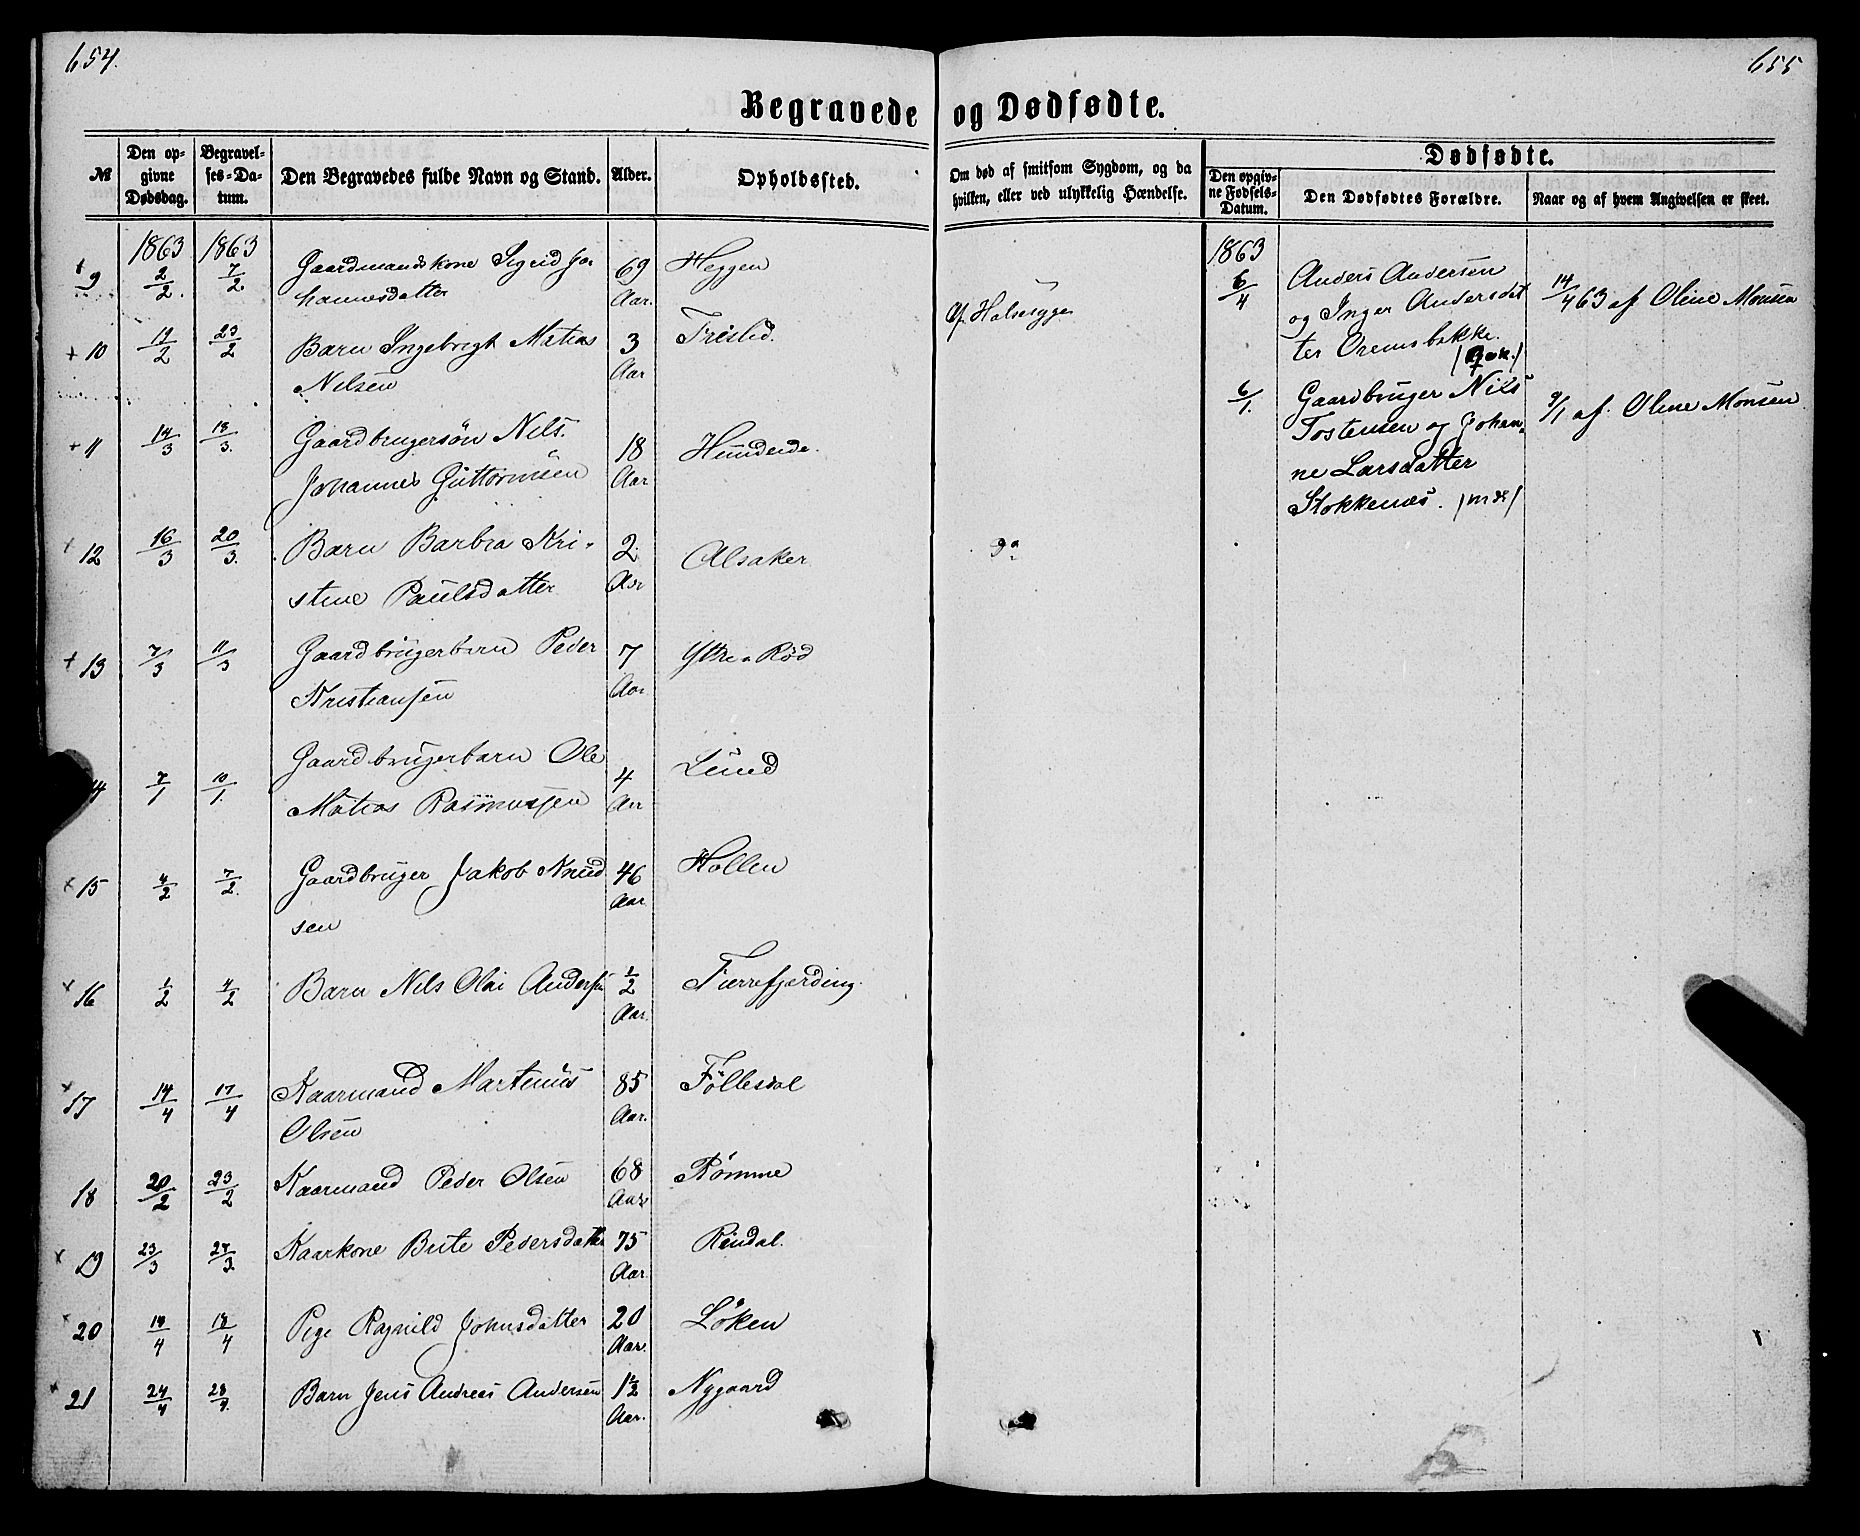 654.
655
Begravede og Dødfødte.
№
Den opgivne Dødsdag.
Begravelses-Datum.
Den Begravedes fulde Navn og Stand.
Alder.
Opholdssted.
Om død af smitsom Sygdom, og da hvilken, eller ved ulykkelig Hændelse.
Dødfødte.
Den opgivne Fødsels-Datum.
Den Dødfødtes Forældre.
Naar og af hvem Angivelsen er skeet.
1863 1863
9 2/2. 7/2. Gaardmandskone Sigrid Jo- 69 Heggen
hannesdatter Aar.
+ 10 19/2 23/2 Barn Ingebrigt Matias 3 Treslid. Af Halssyge
Nilsen Aar
+ 11 14/3 18/3. Gaardbrugersøn Nils 18 Hunderde.
Johannes Guttormsen Aar
+ 12 16/3 20/3. Barn Barbra Kri- 2 Alsaker do
stine Paulsdatter Aar
+ 13 7/3 11/3 Gaardbrugerbarn Peder 7 Ytre Rød
Kristiansen Aar
7/1 10/1. Gaardbrugerbarn Ole 4 Lund
Matias Rasmussen Aar
x 15 4/2 7/2. Gaardbruger Jakob Knud 46 Hollen
sen Aar
x 16 1/2 4/2 Barn Nils Olai Andersen 1/2 Tærrefjerding.
Aar.
x 17 14/4 17/4 Kaarmand Martinus 85 Føllesdal
Olsen Aar.
18 20/2 23/2 Kaarmand Peder Olsen 68 Rømme
Aar
x 19 23/3 27/3 Kaarkone Brite Pedersdatter 75 Reudal.
Aar.
x 20 14/4 18/4 Pige Ragnild Johnsdatter 20 Løken
Aar.
x 21 24/4 28/4. Barn Jens Andreas Andersen 1 1/2 Nygaard
Aar.
1863
6/4 Anders Andersen 14/4 63 af Oline Monsen
og Inger Andersdat
ter Oremsbakke.
6/1. Gaardbruger Nils 9/1 af. Oline Monsen
Tostensen og Johan-
ne Larsdatter
Stokkenæs.